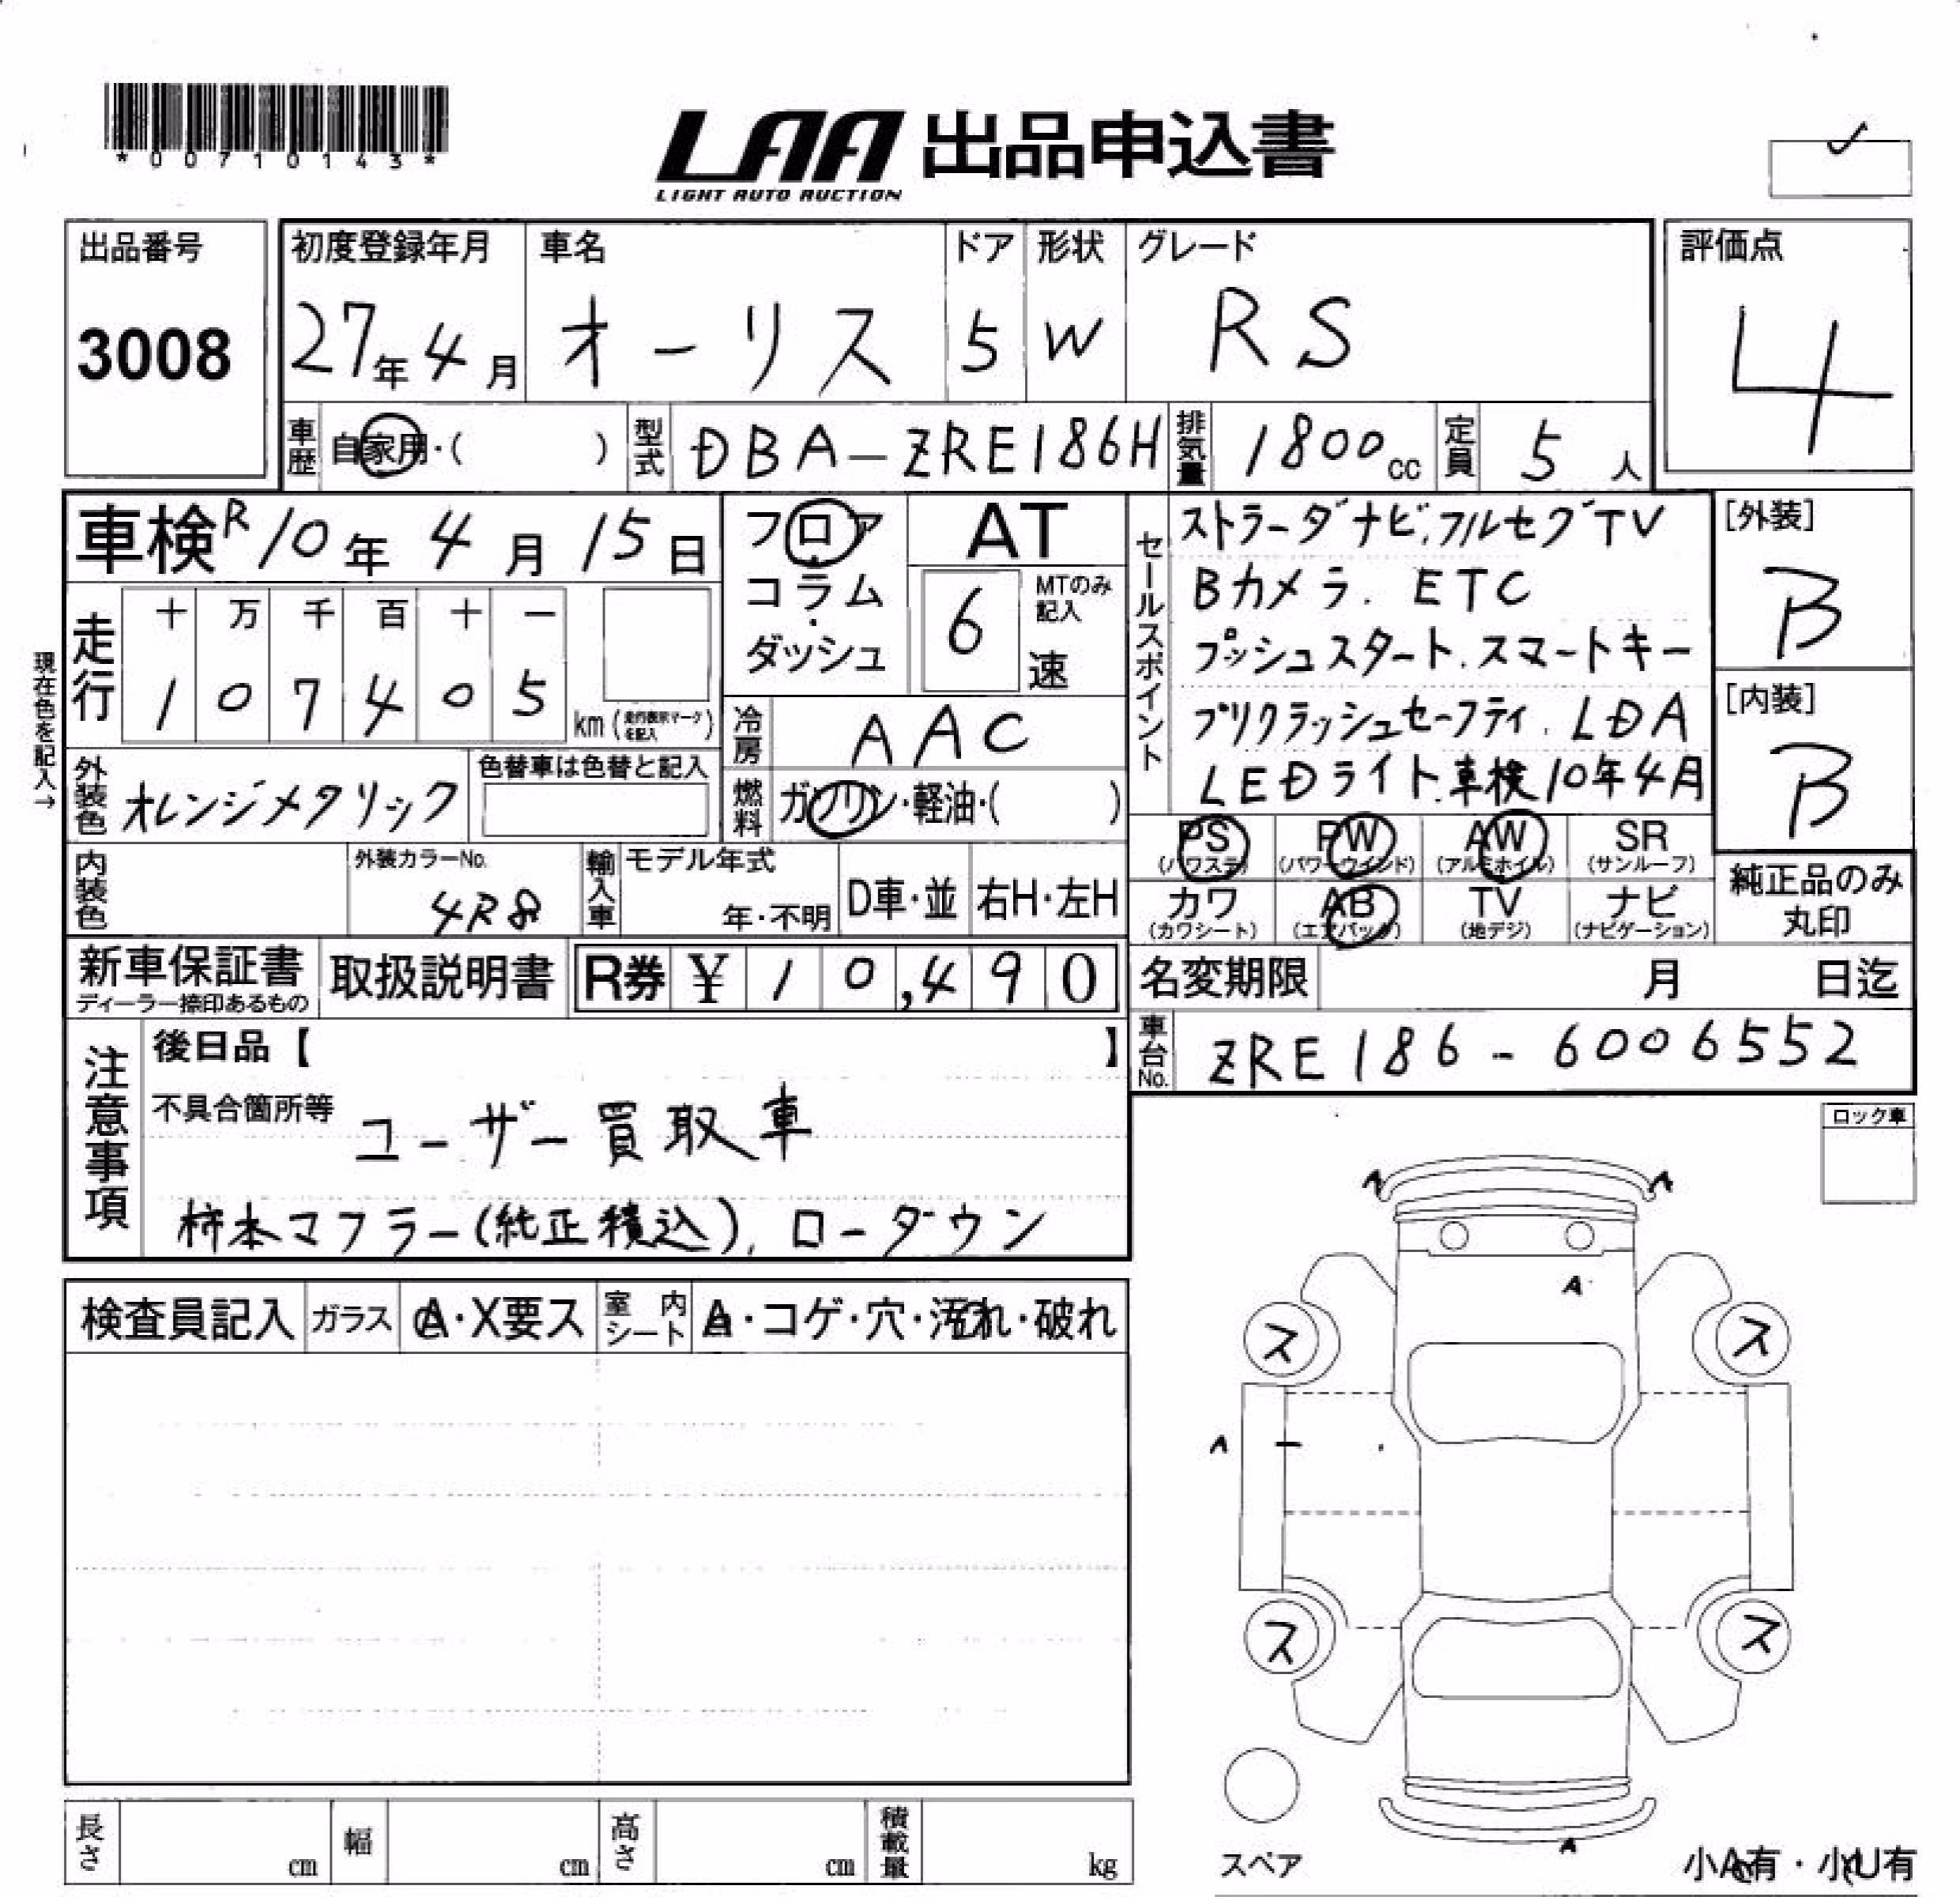 *00710143*
LAA 出品申込書
LIGHT AUTO AUCTION
出品番号
3008
初度登録年月
27年4月
車名
オーリス
ドア
5
形状
W
グレード
RS
評価点
4
車歴
自家用・( )
型式
DBA-ZRE186H
排気量
1800cc
定員
5人
車検 R10年4月15日
フロア・コラム・ダッシュ
AT
6
MTのみ記入
速
セールスポイント
ストラーダナビ.フルセグTV
Bカメラ. ETC
プッシュスタート.スマートキー
プリクラッシュセーフティ. LDA
LEDライト.車検10年4月
[外装]
B
[内装]
B
現在色を記入→
走行
十 万 千 百 十 一
1 0 7 4 0 5
km(走行表示マークを記入)
冷房
AAC
外装色
オレンジメタリック
色替車は色替と記入
燃料
ガソリン・軽油・( )
PS (パワステ)
PW (パワーウインド)
AW (アルミホイル)
SR (サンルーフ)
カワ (カワシート)
AB (エアバック)
TV (地デジ)
ナビ (ナビゲーション)
純正品のみ丸印
内装色
外装カラーNo.
4R8
輸入車
モデル年式
年・不明
D車・並
右H・左H
新車保証書
ディーラー捺印あるもの
取扱説明書
R券 ¥ 10,490
名変期限 月 日迄
車台No.
ZRE186-6006552
注意事項
後日品【 】
不具合箇所等
ユーザー買取車
柿本マフラー(純正積込), ローダウン
ロック車
検査員記入
ガラス
A・X要ス
室内シート
A・コゲ・穴・汚れ・破れ
A
A
A
ス
ス
A
ス
ス
A
スペア
小A有・小U有
長さ cm
幅 cm
高さ cm
積載量 kg